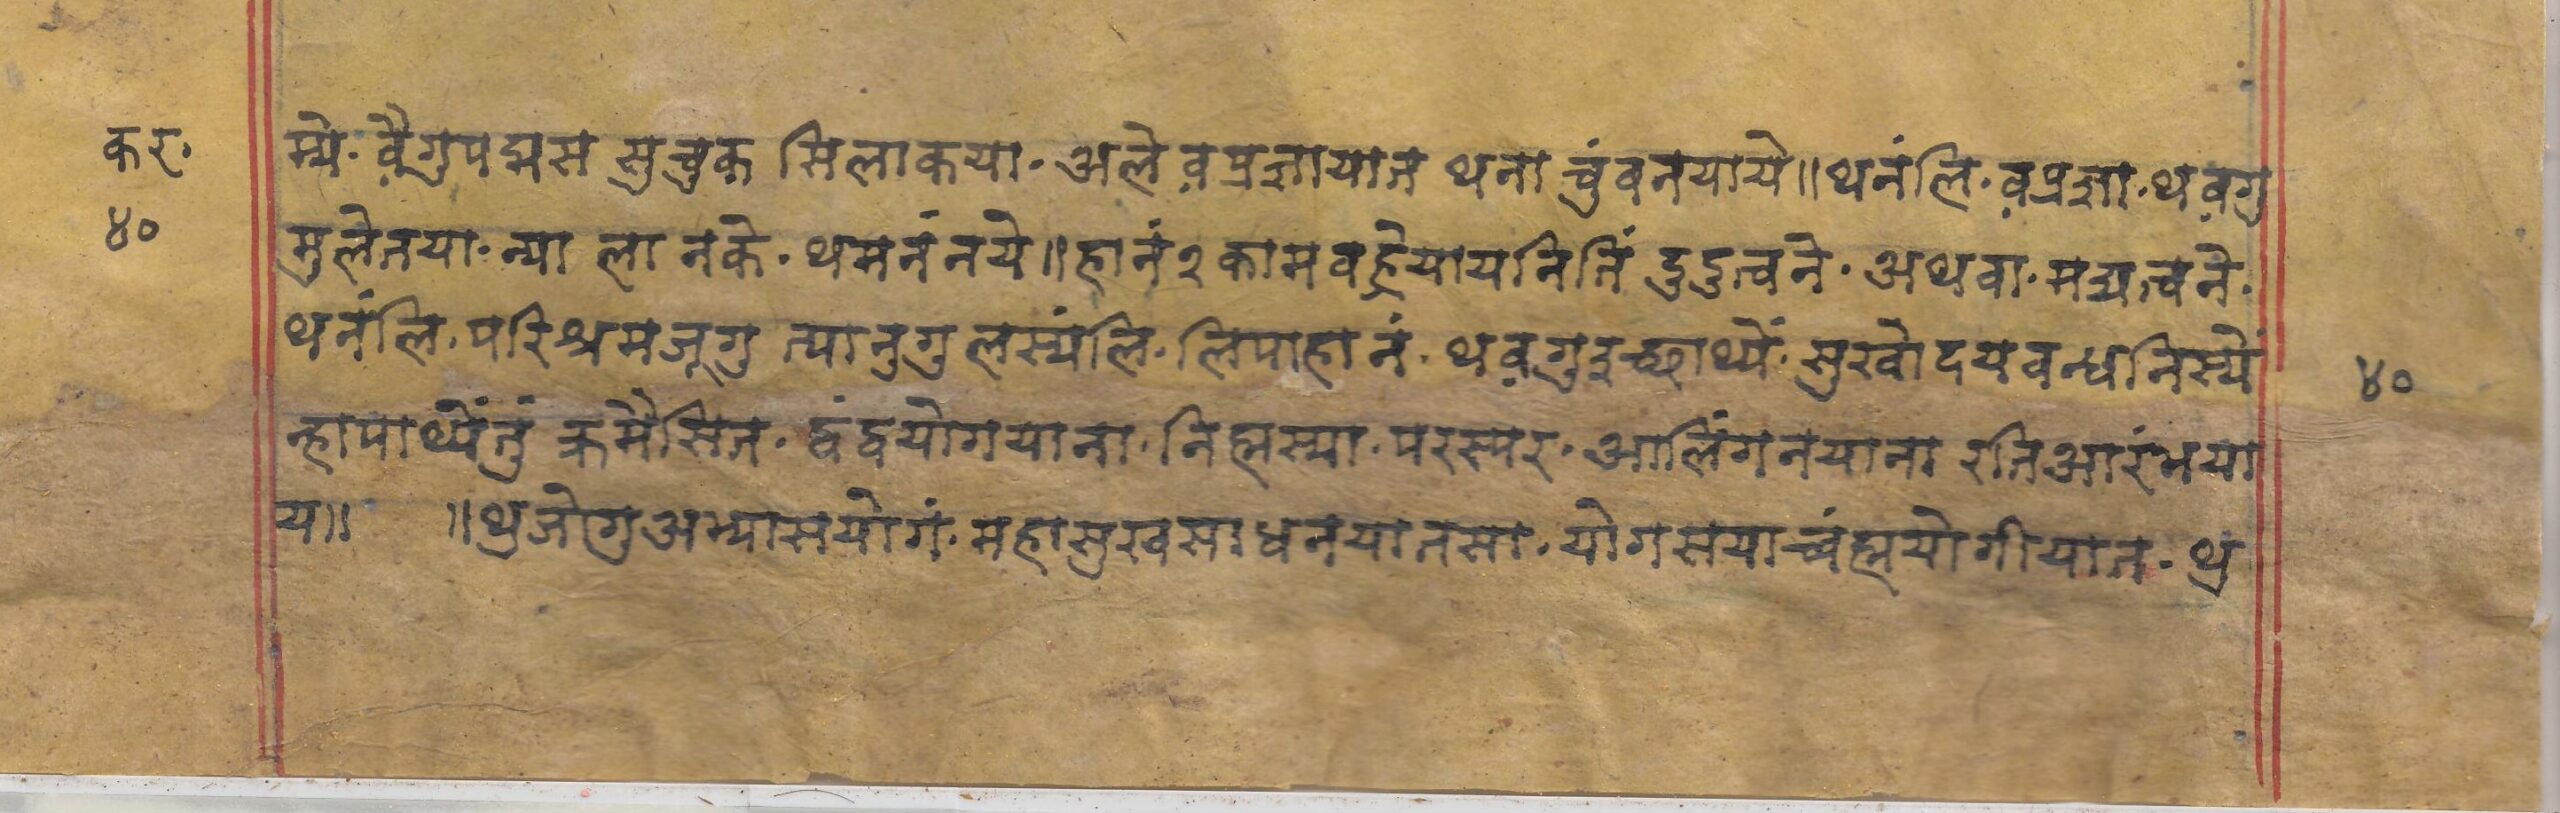 कर. म्ये. व़ैगुपद्मस सुचुक मिलाकया. अले व़प्रज्ञायात थना चुंवनयाये॥थनंलि. व़प्रज्ञा. थव़गु
४० मुलेतया. न्या ला नके. थमनं नये॥हानं२ कामवह्रेयायनितिं दुदुत्वने. अथवा. मद्यत्वने.
थनंलि. परिश्रमजूगु त्यानुगु लस्यंलि. लिपाहानं. थव़गुइच्छाथ्यें. सुखोदयवन्धनिस्यें ४०
न्हापाथ्येंतुं क्रमैसित. द्वंद्वयोगयाना. निह्मस्या. परस्पर. आलिंगनयाना रतिआरंभया
य॥ ॥थ्रजोगुअभ्यासयोगं. महासुखसाधनयातसा. योगसयाच्वंह्मयोगीयात. थ्र